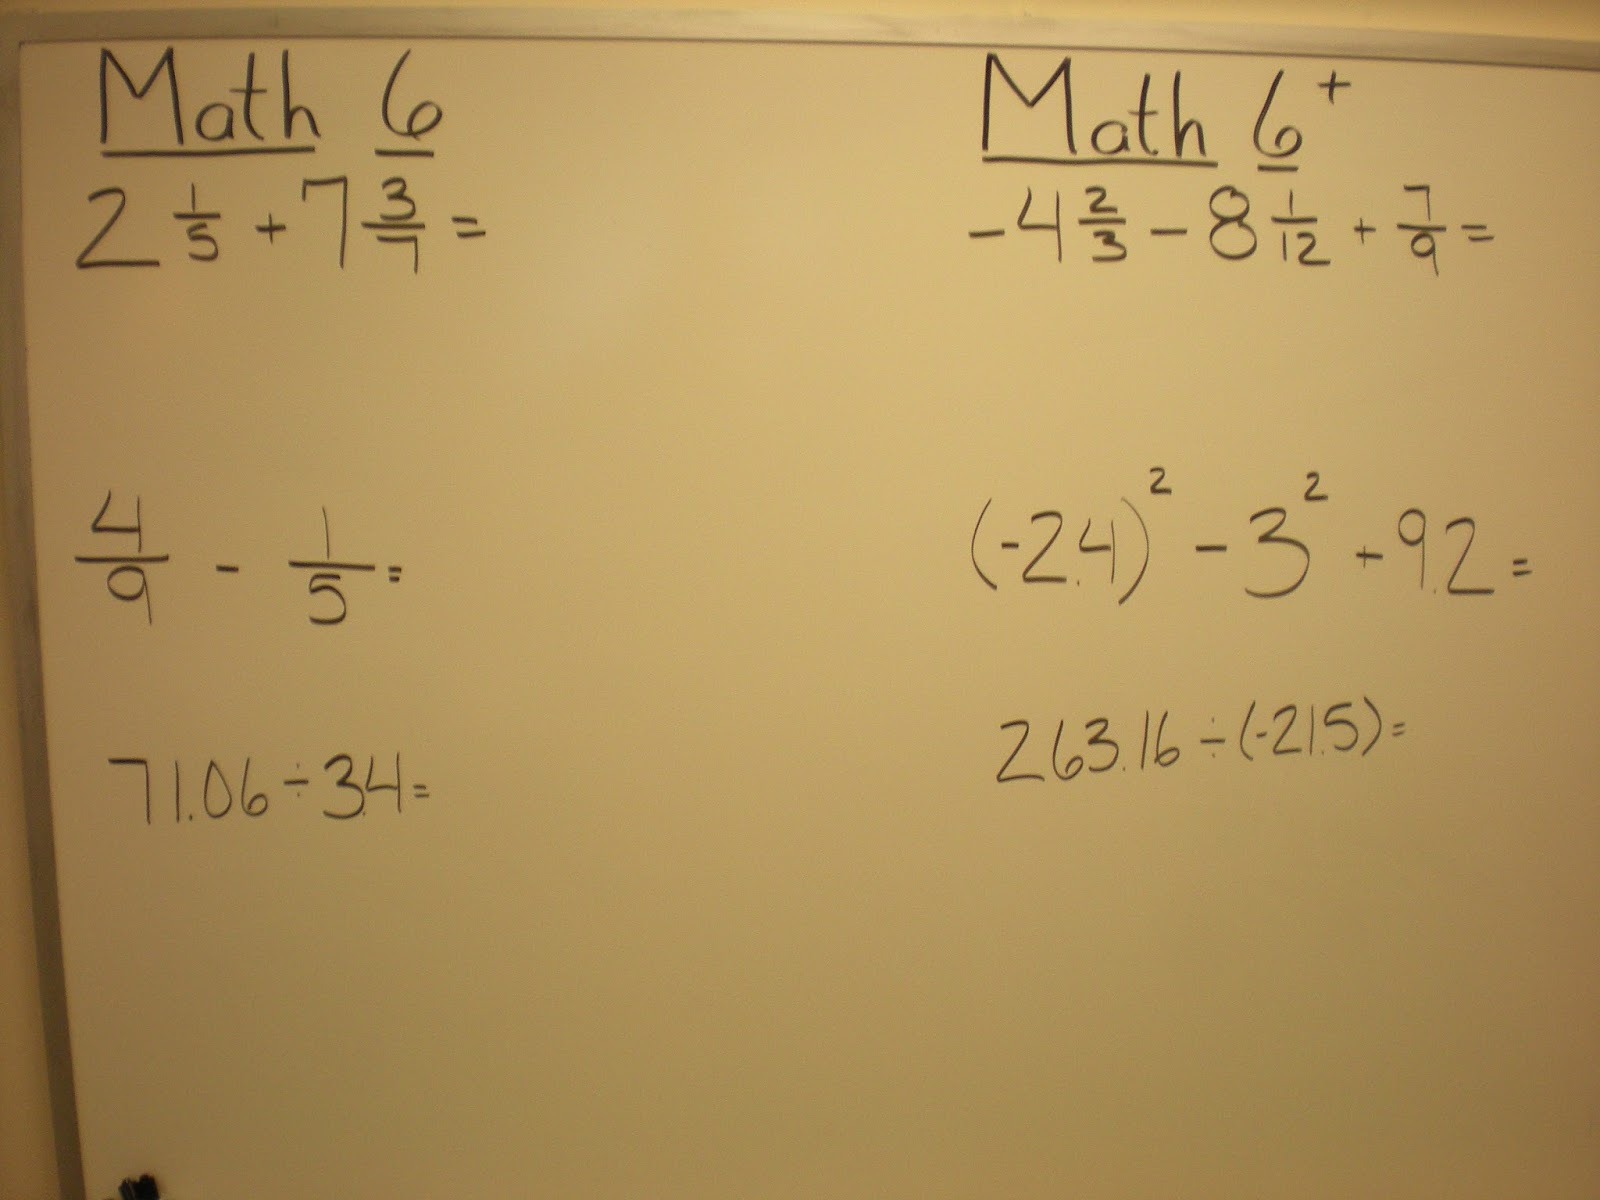 Math 6
2 1/5 + 7 3/7 =
4/9 - 1/5 =
71.06 ÷ 3.4 =
Math 6+
-4 2/3 - 8 1/12 + 7/9 =
(-2.4)² - 3² + 9.2 =
263.16 ÷ (-21.5) =